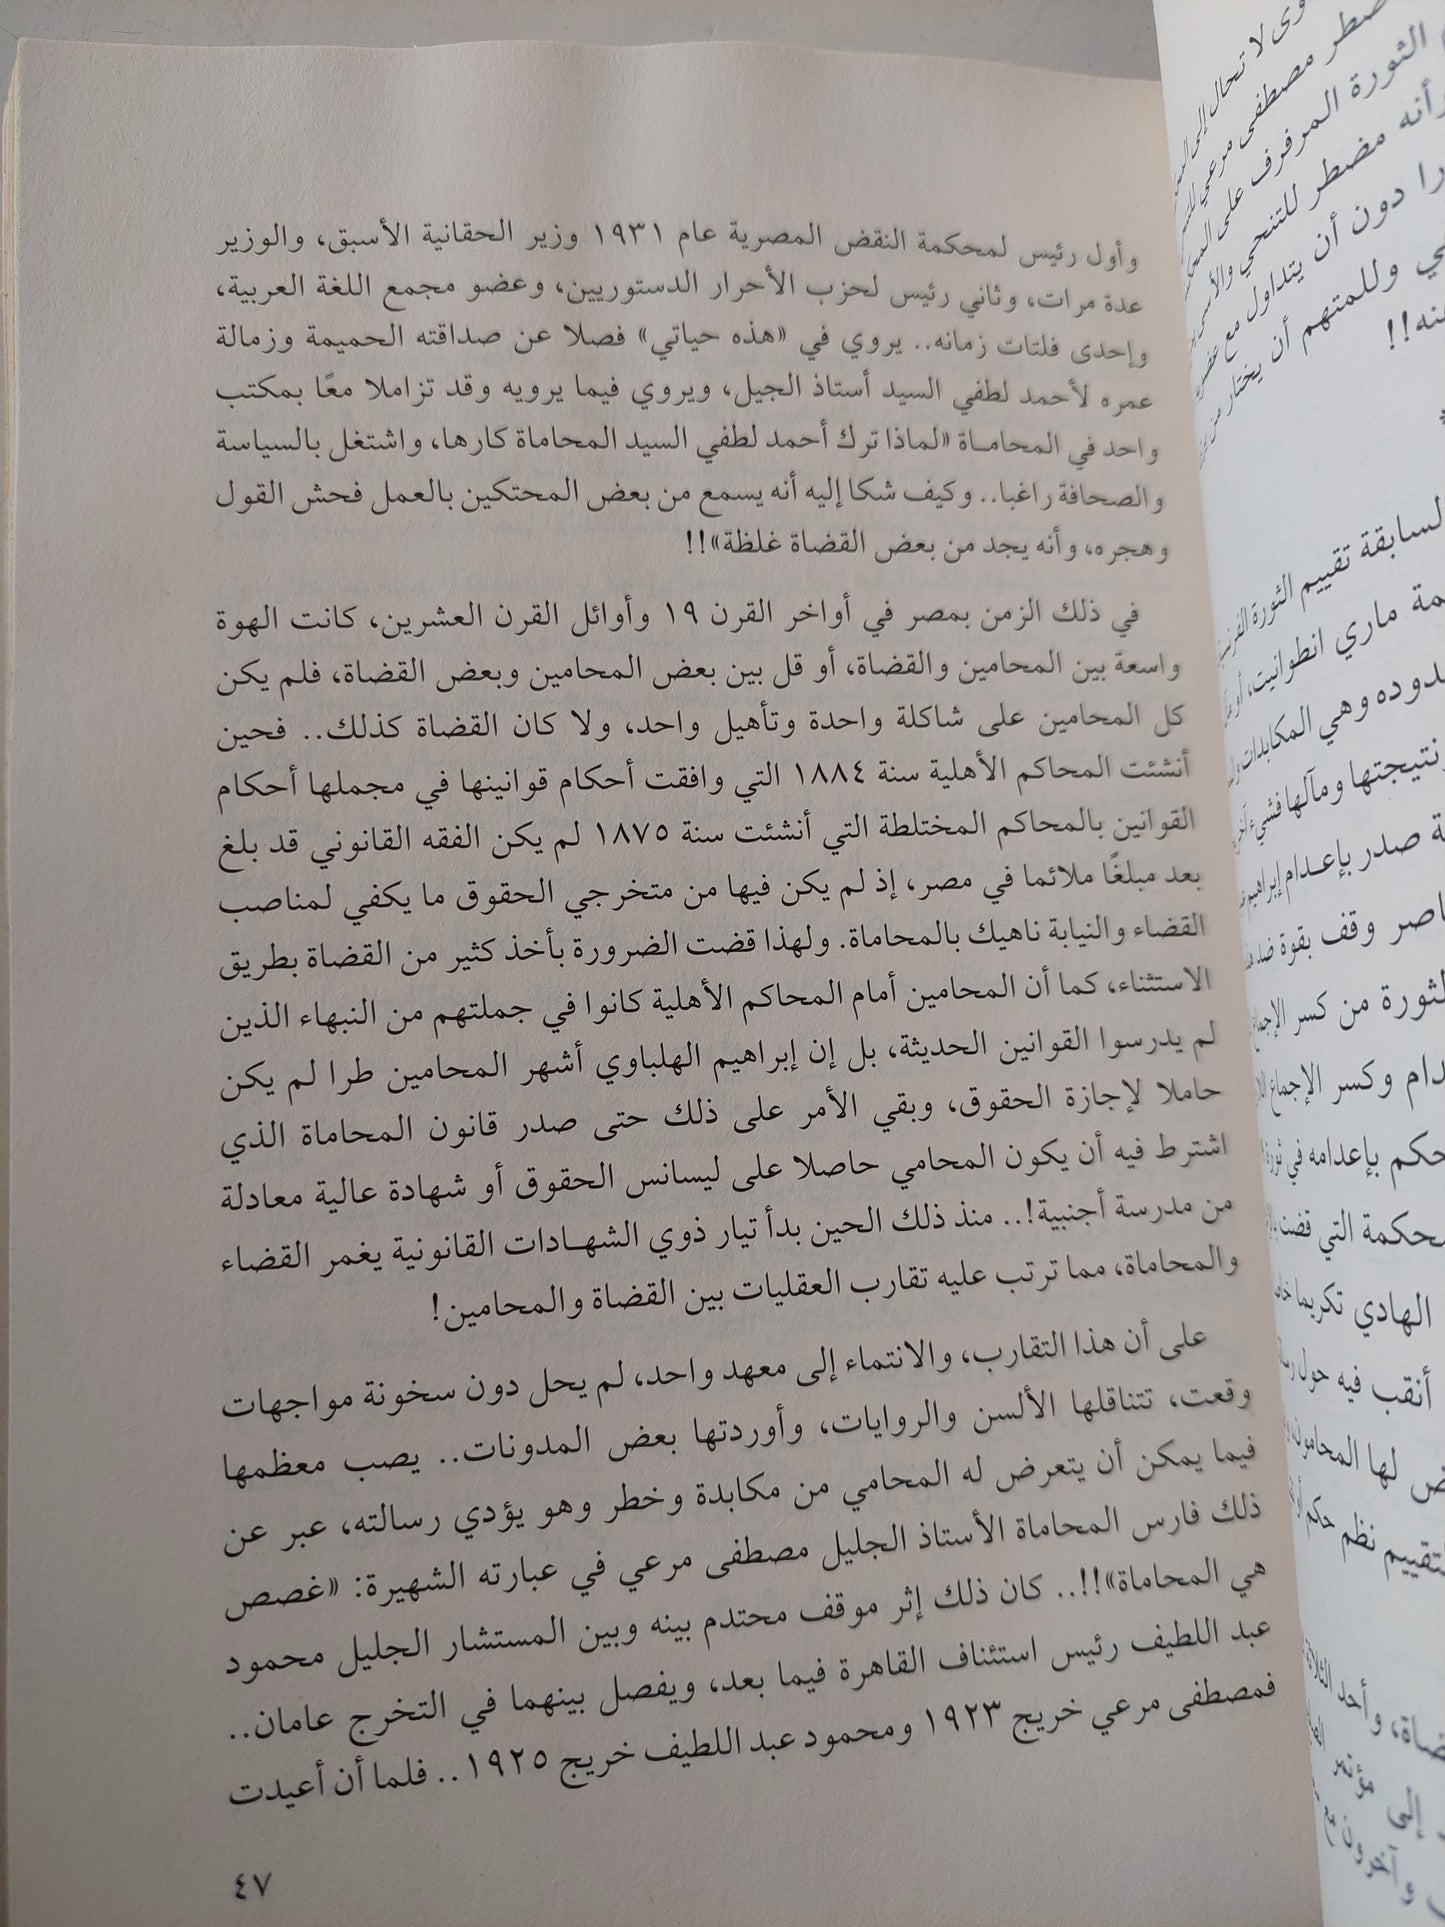 وأول رئيس لمحكمة النقض المصرية عام ١٩٣١ وزير الحقانية الأسبق، والوزير
عدة مرات، وثاني رئيس لحزب الأحرار الدستوريين، وعضو مجمع اللغة العربية،
وإحدى فلتات زمانه.. يروي في «هذه حياتي» فصلا عن صداقته الحميمة وزمالة
عمره لأحمد لطفي السيد أستاذ الجيل، ويروي فيما يرويه وقد تزاملا معًا بمكتب
واحد في المحاماة «لماذا ترك أحمد لطفي السيد المحاماة كارها، واشتغل بالسياسة
والصحافة راغبا.. وكيف شكا إليه أنه يسمع من بعض المحتكين بالعمل فحش القول
وهجره، وأنه يجد من بعض القضاة غلظة»!!
في ذلك الزمن بمصر في أواخر القرن ١٩ وأوائل القرن العشرين، كانت الهوة
واسعة بين المحامين والقضاة، أو قل بين بعض المحامين وبعض القضاة، فلم يكن
كل المحامين على شاكلة واحدة وتأهيل واحد، ولا كان القضاة كذلك.. فحين
أنشئت المحاكم الأهلية سنة ١٨٨٤ التي وافقت أحكام قوانينها في مجملها أحكام
القوانين بالمحاكم المختلطة التي أنشئت سنة ١٨٧٥ لم يكن الفقه القانوني قد بلغ
بعد مبلغًا ملائما في مصر، إذ لم يكن فيها من متخرجي الحقوق ما يكفي لمناصب
القضاء والنيابة ناهيك بالمحاماة. ولهذا قضت الضرورة بأخذ كثير من القضاة بطريق
الاستثناء، كما أن المحامين أمام المحاكم الأهلية كانوا في جملتهم من النبهاء الذين
لم يدرسوا القوانين الحديثة، بل إن إبراهيم الهلباوي أشهر المحامين طرا لم يكن
حاملا لإجازة الحقوق، وبقي الأمر على ذلك حتى صدر قانون المحاماة الذي
اشترط فيه أن يكون المحامي حاصلا على ليسانس الحقوق أو شهادة عالية معادلة
من مدرسة أجنبية!.. منذ ذلك الحين بدأ تيار ذوي الشهادات القانونية يغمر القضاء
والمحاماة، مما ترتب عليه تقارب العقليات بين القضاة والمحامين!
على أن هذا التقارب، والانتماء إلى معهد واحد، لم يحل دون سخونة مواجهات
وقعت، تتناقلها الألسن والروايات، وأوردتها بعض المدونات.. يصب معظمها
فيما يمكن أن يتعرض له المحامي من مكابدة وخطر وهو يؤدي رسالته، عبر عن
ذلك فارس المحاماة الأستاذ الجليل مصطفى مرعي في عبارته الشهيرة: «غصص
هي المحاماة»!!.. كان ذلك إثر موقف محتدم بينه وبين المستشار الجليل محمود
عبد اللطيف رئيس استئناف القاهرة فيما بعد، ويفصل بينهما في التخرج عامان..
فمصطفى مرعي خريج ١٩٢٣ ومحمود عبد اللطيف خريج ١٩٢٥.. فلما أن أعيدت
٤٧
لا تحال إلى
مصطفى مرعي
الثورة المرفرف على
وأنه مضطر للتنحي
دون أن يتداول مع
وللمتهم أن يختار من
السابقة تقييم الثورة
ماري انطوانيت، أو
وهي المكابدات
ونتيجتها ومآلها
صدر بإعدام إبراهيم
وقف بقوة ضد
من كسر
وكسر الإجماع
بإعدامه في
التي قضت
الهادي تكريما
أنقب فيه حول
لها المحامون
نظم حكم
إلى مؤتمر
وآخرون